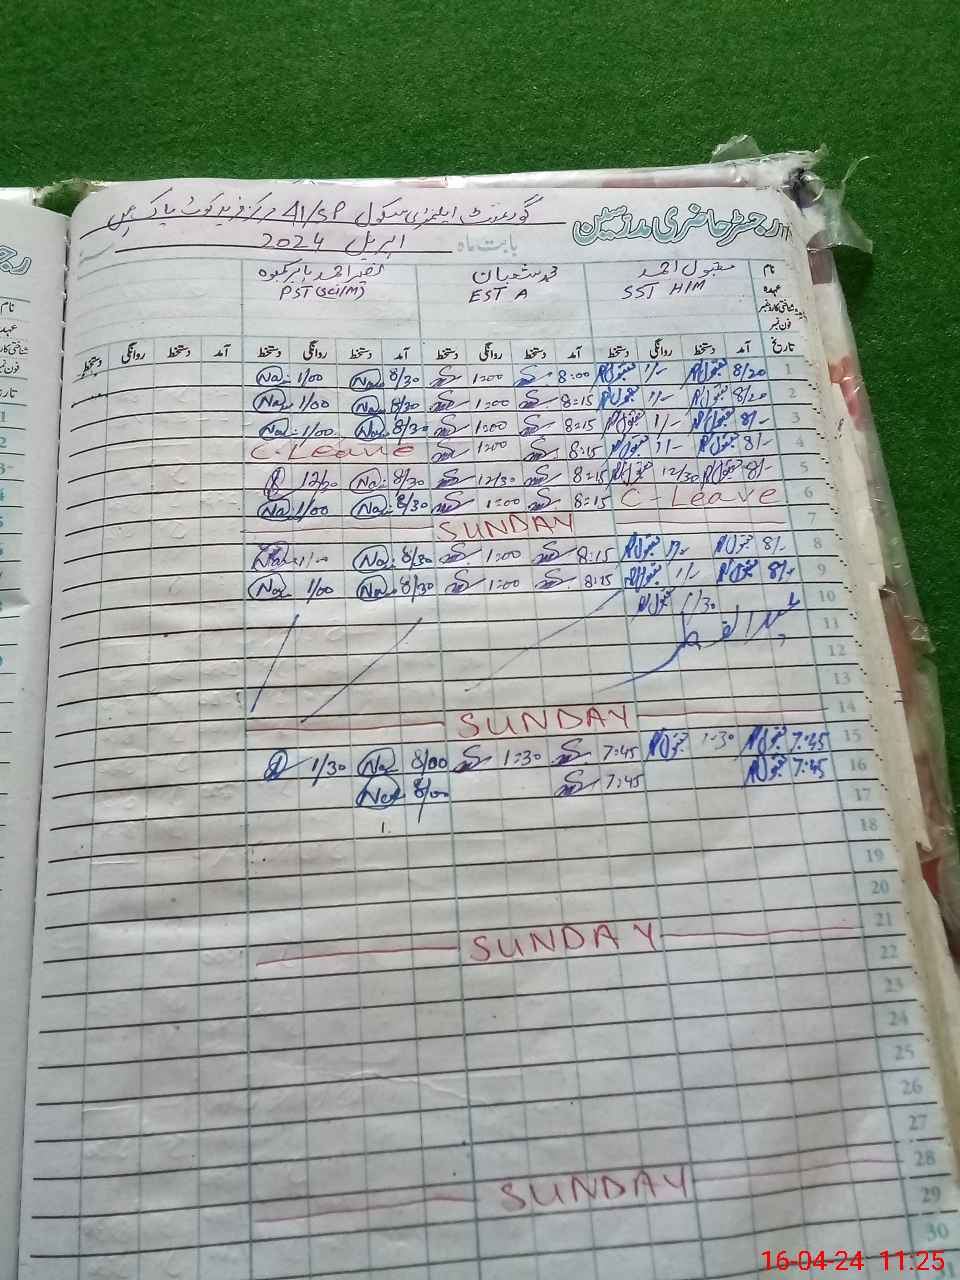 رجسٹر حاضری مدرسین گورنمنٹ ایلیمنٹری سکول 41/SP مرکز فرید کوٹ پاکپتن
بابت ماہ اپریل 2024
نام مقبول احمد محمد شعبان
عہدہ SST HIM EST A PST (sci/M)
فون نمبر
تاریخ آمد دستخط روانگی دستخط آمد دستخط روانگی دستخط آمد دستخط روانگی دستخط آمد دستخط روانگی دستخط
1 8/20 مقبول 1/- مقبول 8:00 1:00 8/30 Na 1/00 Na
2 8/20 مقبول 1/- مقبول 8:15 1:00 8/30 Na 1/00 Na
3 8/- مقبول 1/- مقبول 8:15 1:00 8/30 Na 1/00 Na
4 8/- مقبول 1/- مقبول 8:15 1:00 C-Leave
5 8/- مقبول 12/30 مقبول 8:15 12/30 8/30 Na 12/30
6 C-Leave 8:15 1:00 8/30 Na 1/00 Na
7 SUNDAY
8 8/- مقبول 1/- مقبول 8:15 1:00 8/30 Na 1/- Na
9 8/- مقبول 1/- مقبول 8:15 1:00 8/30 Na 1/00 Na
10 1/30 مقبول
11 عید الفطر
12
13
14 SUNDAY
15 7:45 مقبول 1:30 مقبول 7:45 1:30 8/00 Na 1/30
16 7:45 مقبول 7:45 8/00 Na
17
18
19
20
21 SUNDAY
22
23
24
25
26
27
28 SUNDAY
29
30
31
16-04-24 11:25